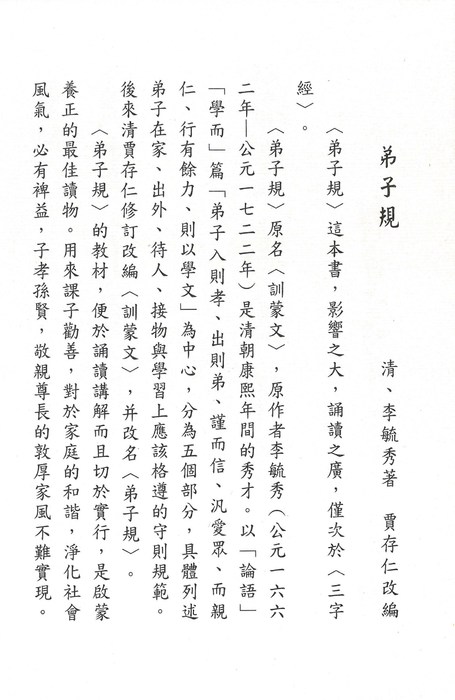 弟子規
清、李毓秀著　賈存仁改編
〈弟子規〉這本書，影響之大，誦讀之廣，僅次於〈三字
經〉。
〈弟子規〉原名〈訓蒙文〉，原作者李毓秀（公元一六六
二年—公元一七二二年）是清朝康熙年間的秀才。以「論語」
「學而」篇「弟子入則孝、出則弟、謹而信、汎愛眾、而親
仁、行有餘力、則以學文」為中心，分為五個部分，具體列述
弟子在家、出外、待人、接物與學習上應該格遵的守則規範。
後來清賈存仁修訂改編〈訓蒙文〉，并改名〈弟子規〉。
〈弟子規〉的教材，便於誦讀講解而且切於實行，是啟蒙
養正的最佳讀物。用來課子勸善，對於家庭的和諧，淨化社會
風氣，必有裨益，子孝孫賢，敬親尊長的敦厚家風不難實現。